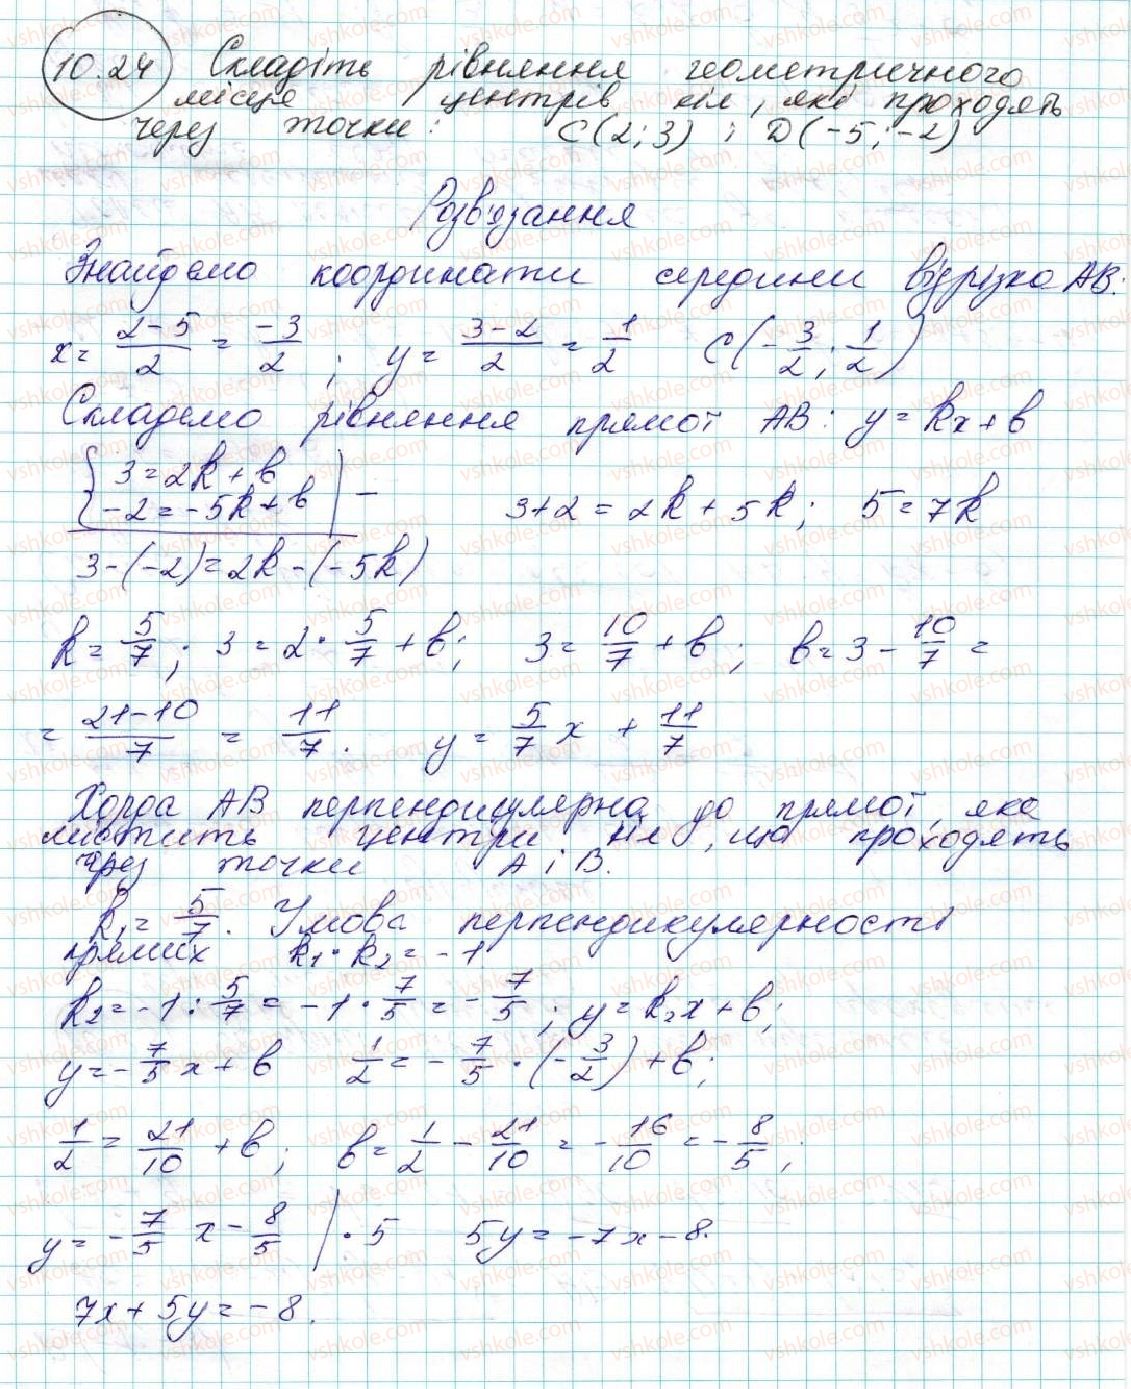 10.24 Складіть рівняння геометричного
місця центрів кіл, які проходять
через точки: C(2;3) і D(-5;-2)
Розв'язання
Знайдемо координати середини відрізка AB:
x = (2-5)/2 = -3/2; y = (3-2)/2 = 1/2 C(-3/2; 1/2)
Складемо рівняння прямої AB: y = kx + b
{ 3 = 2k + b
{ -2 = -5k + b | − 3+2 = 2k + 5k; 5 = 7k
3-(-2) = 2k-(-5k)
k = 5/7; 3 = 2·5/7 + b; 3 = 10/7 + b; b = 3 - 10/7 =
= (21-10)/7 = 11/7. y = 5/7 x + 11/7
Хорда AB перпендикулярна до прямої, яка
містить центри кіл, що проходять
через точки A і B.
k₁ = 5/7. Умова перпендикулярності
прямих k₁·k₂ = -1
k₂ = -1 : 5/7 = -1·7/5 = -7/5; y = k₂x + b;
y = -7/5 x + b 1/2 = -7/5·(-3/2) + b;
1/2 = 21/10 + b; b = 1/2 - 21/10 = -16/10 = -8/5;
y = -7/5 x - 8/5 |·5 5y = -7x - 8.
7x + 5y = -8.